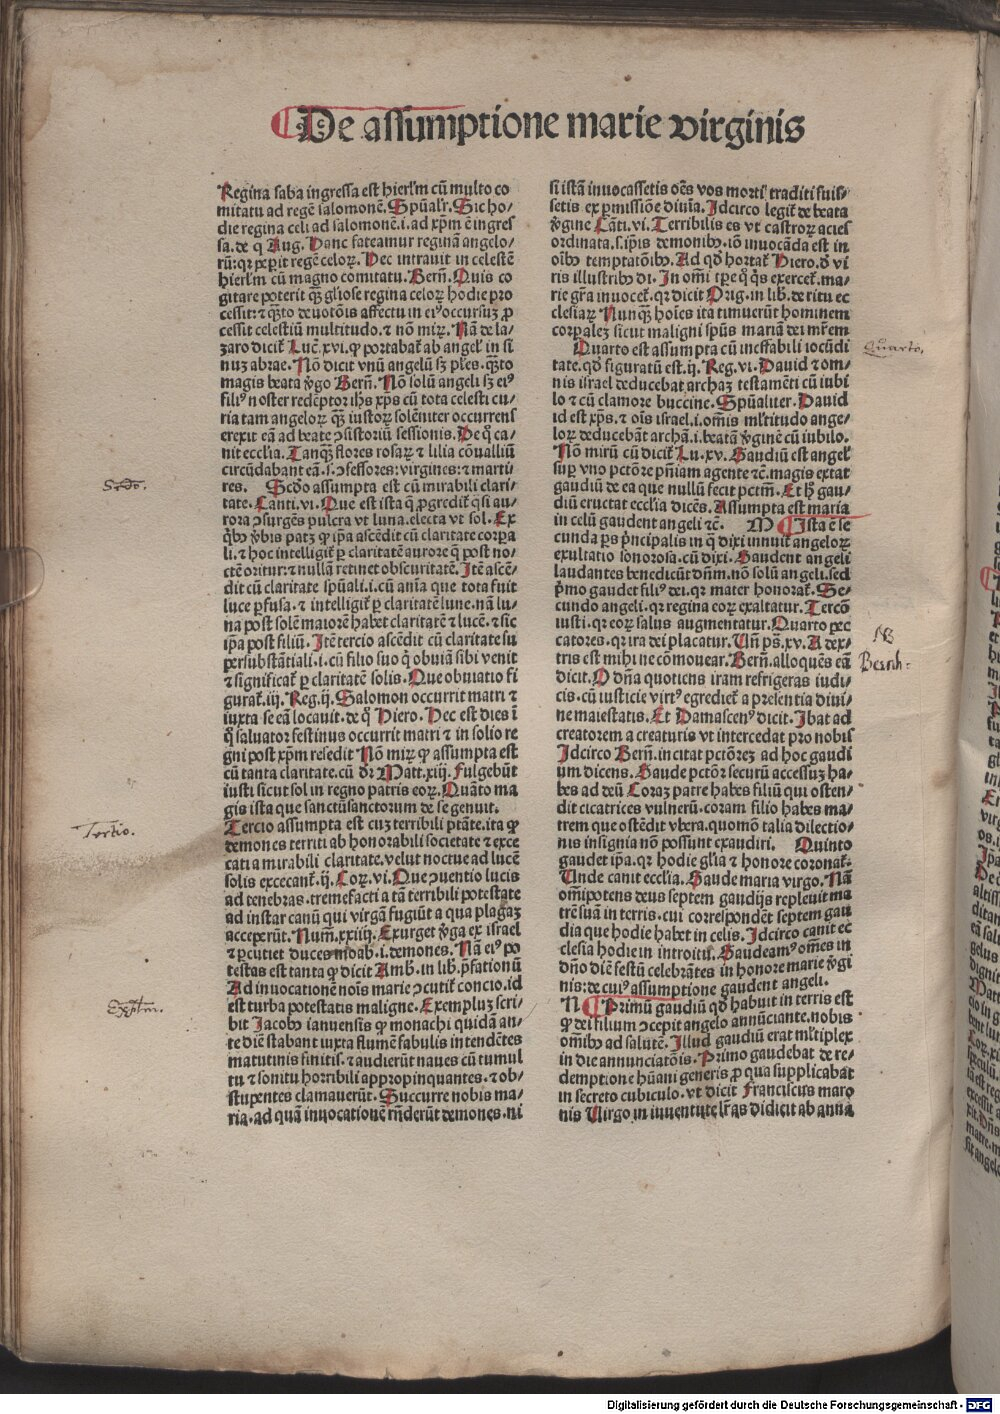 De assumptione marie virginis
Regina saba ingressa est hierl'm cū multo co
mitatu ad regē salomonē. Spūal'r. Sic ho/
die regina celi ad salomonē .i. ad xp̄m ē ingres
sa. de q̄ Aug. Hanc fateamur reginā angelo/
rū: qr peperit regē celoꝝ. Hec intravit in celestē
hierl'm cū magno comitatu. Bern̄. Quis co
gitare poterit qꝫ gl'iose regina celoꝝ hodie pro
cessit: ⁊ qꝫto devotōis affectu in eiꝰ occursuꝫ ꝓ
cessit celestiū multitudo. ⁊ nō miꝝ. Nā de la/
zaro dicit Luc̄. xvi. ꝙ portabat ab angel' in si
nuꝫ abrae. Nō dicit vnū angelū sꝫ pl'es. qꝫto
magis beata v̄go Bern̄. Nō solū angeli sꝫ eiꝰ
filiꝰ noster redēptor ihs xp̄s cū tota celesti cu/
ria tam angeloꝝ qꝫ iustoꝝ solēniter occurrens
erexit eā ad beate ↄsistoriū sessionis. De q̄ ca/
nit eccl'ia. Tanqꝫ flores rosaꝝ ⁊ lilia cōvalliū
circūdabant eā .s. ↄfessores: virgines: ⁊ marti/
res. Scdo assumpta est cū mirabili clari/
tate. Canti. vi. Que est ista q̄ ꝓgredit qsi au/
rora ↄsurgēs pulcra vt luna. electa vt sol. Ex
qbꝰ v̄bis patꝫ ꝙ ip̄a ascēdit cū claritate corꝑa
li. ⁊ hoc intelligit ꝑ claritatē aurore q̄ post no/
ctē oritur: ⁊ nullā retinet obscuritatē. Itē ascē/
dit cū claritate spūali .i. cū anīa que tota fuit
luce ꝑfusa. ⁊ intelligit ꝑ claritatē lune. nā lu/
na post solē maiorē habet claritatē ⁊ lucē. ⁊ sic
ip̄a post filiū. Itē tercio ascēdit cū claritate su
persubstātiali .i. cū filio suo q̄ obuiā sibi venit
⁊ significat ꝑ claritatē solis. Que obuiatio fi
gurat. iij. Reg. ij. Salomon occurrit matri ⁊
iuxta se eā locauit. de q̄ Hiero. Hec est dies ī
q̄ saluator festinus occurrit matri ⁊ in solio re
gni post xp̄m resedit Nō miꝝ ꝙ assumpta est
cū tanta claritate. cū dr̄ Matt. xiij. Fulgebūt
iusti sicut sol in regno patris eoꝝ. Quāto ma
gis ista que sanctū sanctorum de se genuit.
Tercio assumpta est cuꝫ terribili ptāte. ita ꝙ
demones territi ab honorabili societate ⁊ exce
cati a mirabili claritate. velut noctue ad lucē
solis excecant. ij. Coꝝ. vi. Que ↄuentio lucis
ad tenebras. tremefacti a tā terribili potestate
ad instar canū qui virgā fugiūt a qua plagaꝫ
acceperūt. Num. xxiiij. Exurget v̄ga ex israel
⁊ ꝑcutiet duces moab .i. demones. Nā eiꝰ po
testas est tanta ꝙ dicit Amb. in lib. p̄fationū
Ad inuocationē nōis marie ↄcutit concio. id
est turba potestatis maligne. Exempluꝫ scri/
bit Iacobꝰ ianuensis ꝙ monachi quidā an/
te diē stabant iuxta flumē fabulis intendētes
matutinis finitis. ⁊ audierūt naues cū tumul
tu ⁊ sonitu horribili appropinquantes. ⁊ ob/
stupentes clamauerūt. Succurre nobis ma/
ria. ad quā inuocationē rn̄derūt demones. ni
si istā inuocassetis oēs vos morti traditi fuis/
setis ex ꝑmissiōe diuīa. Idcirco legit de beata
v̄gine Cāti. vi. Terribilis es vt castroꝝ acies
ordinata. s. ip̄is demonibꝰ. iō inuocāda est in
oībꝰ temptatōibꝰ. Ad qd hortat Hiero. d̄ vi
ris illustribꝰ di. In omī tꝑe q̄ qs exercet. ma/
rie gr̄a inuocet. qr dicit Orig. in lib. de ritu ec
clesiaꝝ Nunqꝫ hoīes ita timuerūt hominem
corꝑaleꝫ sicut maligni spūs mariā dei mr̄em
Quarto est assumpta cū ineffabili iocūdi
tate. qd figuratū est. ij. Reg. vi. Dauid ⁊ om/
nis israel deducebat archaꝫ testamēti cū iubi
lo ⁊ cū clamore buccine. Spūaliter. Dauid
id est xp̄s. ⁊ oīs israel .i. omīs ml'titudo ange/
loꝝ deducebāt archā .i. beatā v̄ginē cū iubilo.
Nō mirū cū dicit Lu. xv. Gaudiū est angel'
suꝑ vno pctōre pn̄iam agente ⁊c̄. magis extat
gaudiū de ea que nullū fecit pctm̄. Et h̄ gau/
diū eructat eccl'ia dicēs. Assumpta est maria
in celū gaudent angeli ⁊c̄. M Ista ē se
cunda ꝑs pn̄cipalis in q̄ dixi innuit angeloꝝ
exultatio sonorosa. cū dixi. Gaudent angeli
laudantes benedicūt dn̄m. nō solū angeli. sed
pͥmo gaudet filiꝰ dei. qr mater honorat. Se/
cundo angeli. qr regina eoꝝ exaltatur. Tercō
iusti. qr eoꝝ salus augmentatur. Quarto pec
catores. qr ira dei placatur. Un̄ ps̄. xv. A dex/
tris est mihi ne cōmouear. Bern̄. alloquēs eā
dicit. O dn̄a quotiens iram refrigeras iudi/
cis. cū iusticie virtꝰ egredieť a presentia diui/
ne maiestatis. Et Damascenꝰ dicit. Ibat ad
creatorem a creaturis vt intercedat pro nobis
Idcirco Bern̄. incitat pctōreꝫ ad hoc gaudi
um dicens. Gaude pctōr securū accessuꝫ ha/
bes ad deū Coraꝫ patre habes filiū qui osten/
dit cicatrices vulnerū. coram filio habes ma/
trem que ostēdit vbera. quomō talia dilectio/
nis insignia nō possunt exaudiri. Quinto
gaudet ip̄a. qr hodie gl'ia ⁊ honore coronat.
Unde canit eccl'ia. Gaude maria virgo. Nā
omīpotens deus septem gaudijs repleuit ma
trē suā in terris. cui correspondēt septem gau
dia que hodie habet in celis. Idcirco canit ec
clesia hodie in introitu. Gaudeamꝰ omēs in
dn̄o diē festū celebrātes in honore marie v̄gi
nis: de cuiꝰ assumptione gaudent angeli.
N Primū gaudiū qd habuit in terris est
ꝙ dei filium ↄcepit angelo annūciante. nobis
omībꝰ ad salutē. Illud gaudiū erat ml'tiplex
in die annunciatōis. Primo gaudebat de re/
demptione hūani generis ꝓ qua supplicabat
in secreto cubiculo. vt dicit Franciscus maro
nis Uirgo in iuuentute lr̄as didicit ab anna
Scdo.
Tertio.
Exptm.
Quarto.
NB
Bernh:
Digitalisierung gefördert durch die Deutsche Forschungsgemeinschaft - DFG